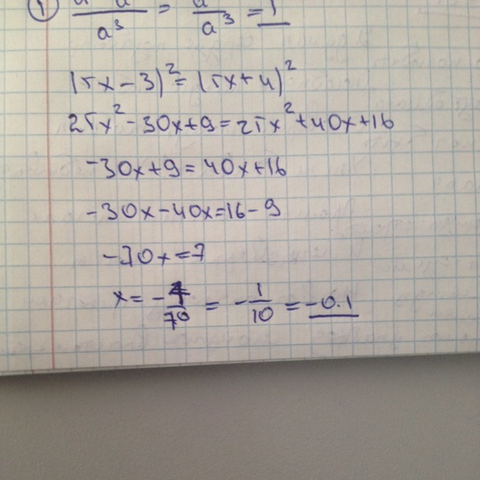 ① = = 1
a³ a³
(5x-3)² = (5x+4)²
25x² - 30x+9 = 25x² + 40x + 16
-30x+9 = 40x+16
-30x-40x=16-9
-70x=7
x = -7/70 = -1/10 = -0.1